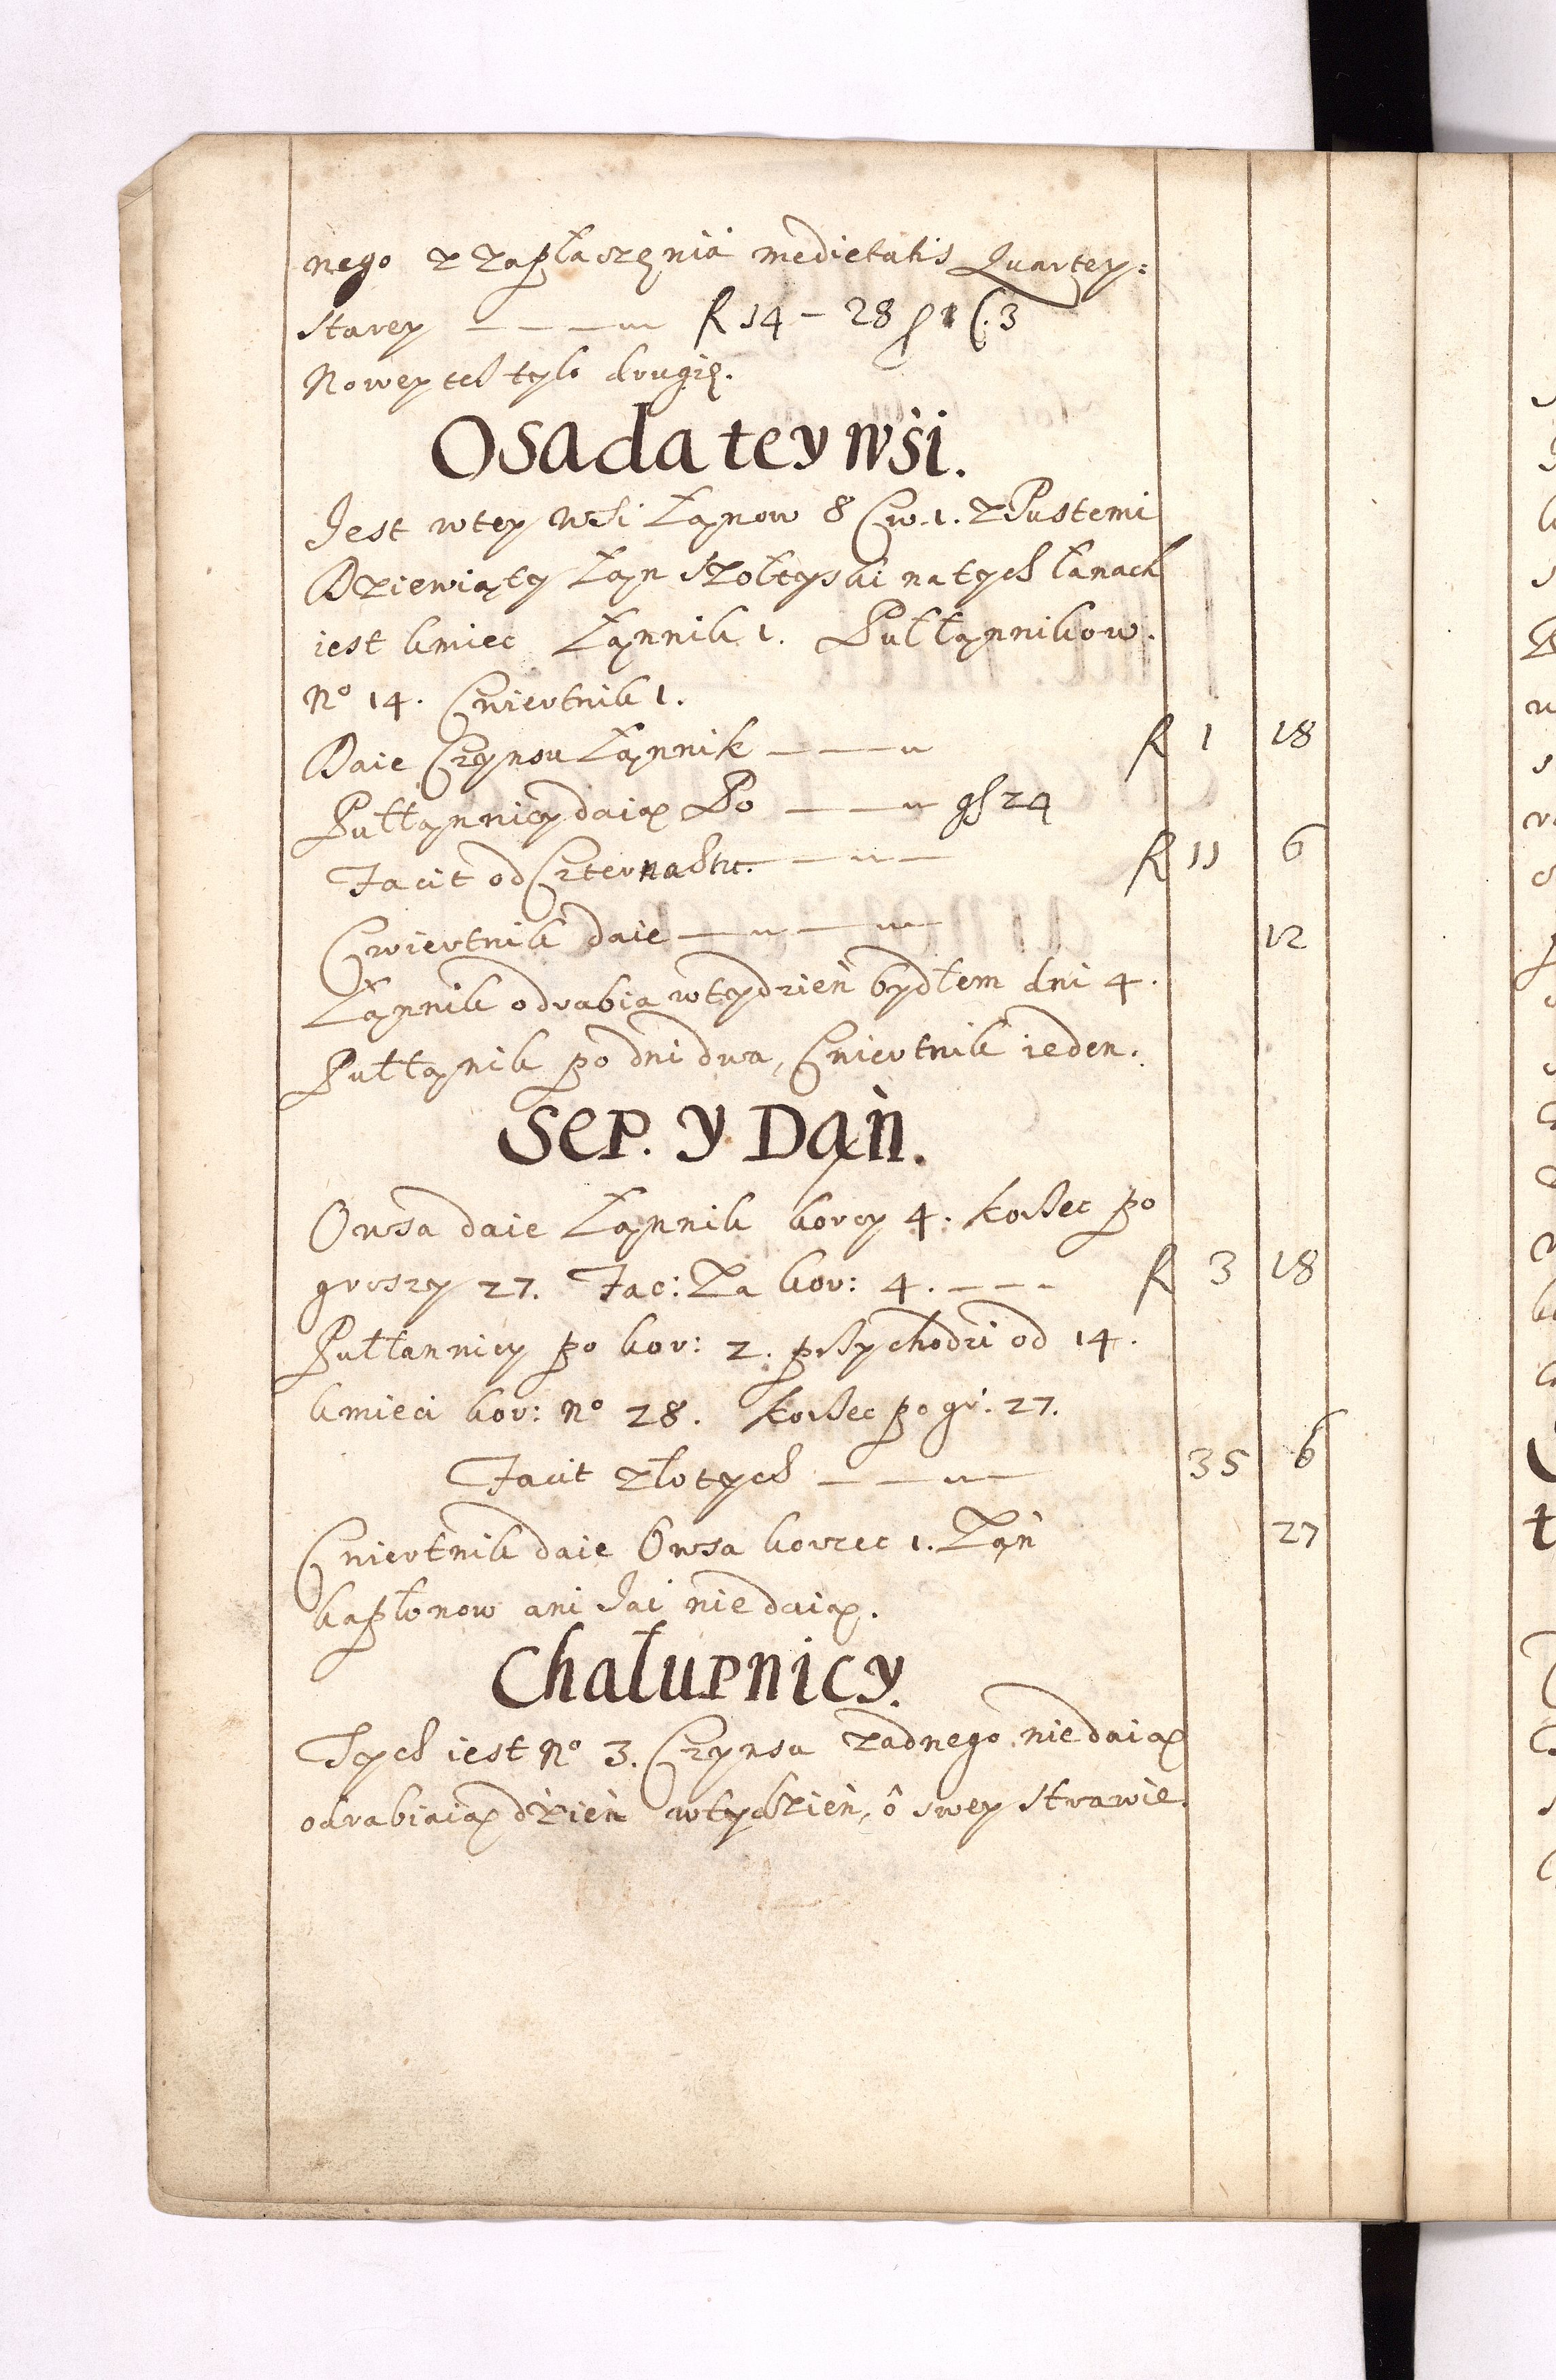 nego z zapłaczęnia medietatis Quartey:
starey — — — fl 14 – 28 ß 1 3
Nowey tel tylo drugię.
Osada tey wśi.
Jest wtey wsi Łąnow 8 Cw. 1. z Pustemi
Dziewiąty Łąn szołtyski na tych łanach
iest kmiec Łąnnik 1. Pułłąnnikow.
No 14. Cwiertnik 1.
Daie Czynsu Łąnnik — — — fl 1 18
Pułłąnnicy daią Po — — gß 24
Facit od Czternastu. — — — fl 11 6
Cwiertnik daie — — — 12
Łąnnik odrabia wtydzień bydłem dni 4.
Pułłąnik po dni dwa, Cwiertnik ieden.
Sep. y Dąń.
Owsa daie Łąnnik korcy 4: korzec po
groszy 27. Fac: Za kor: 4. — — — fl 3 18
Pułłannicy po kor: 2. pszychodzi od 14.
kmieci kor: No 28. korzec po gr: 27.
Facit złotych — — — 35 6
Cwiertnik daie Owsa korzec 1. Zań 27
kapłonow ani Jai nie daią.
Chałupnicy.
Tych iest No 3. Czynsu zadnego nie daią
odrabiaią dźień wtydzień, ô swey strawie.